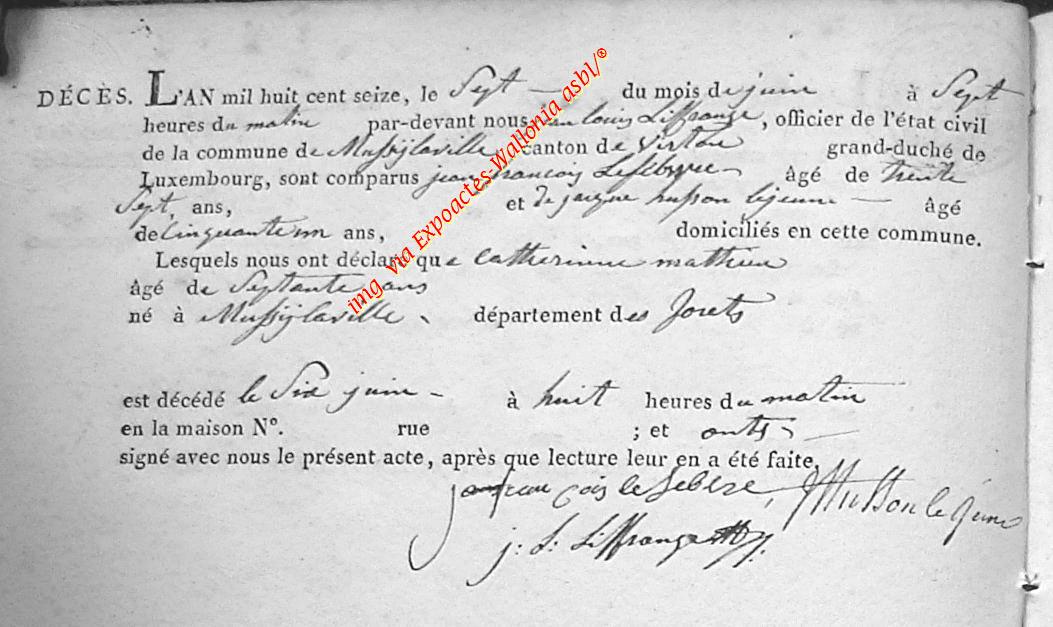 DÉCÈS. L'AN mil huit cent seize, le Sept du mois de juin à Sept
heures du matin par-devant nous jean louis Liffrange, officier de l'état civil
de la commune de Mussijlaville canton de Virton grand-duché de
Luxembourg, sont comparus jean françois Lefebvre âgé de trente
Sept ans, et de jacque husson lejeune âgé
de Cinquante un ans, domiciliés en cette commune.
Lesquels nous ont déclaré que catherinne mathieu
âgé de Septante ans
né à Mussijlaville département des forets
est décédé le Six juin à huit heures du matin
en la maison N°. rue ; et onts
signé avec nous le présent acte, après que lecture leur en a été faite.
le febvre, husson le jeune
j: L: Liffrange
img via Expoactes-Wallonia asbl/®